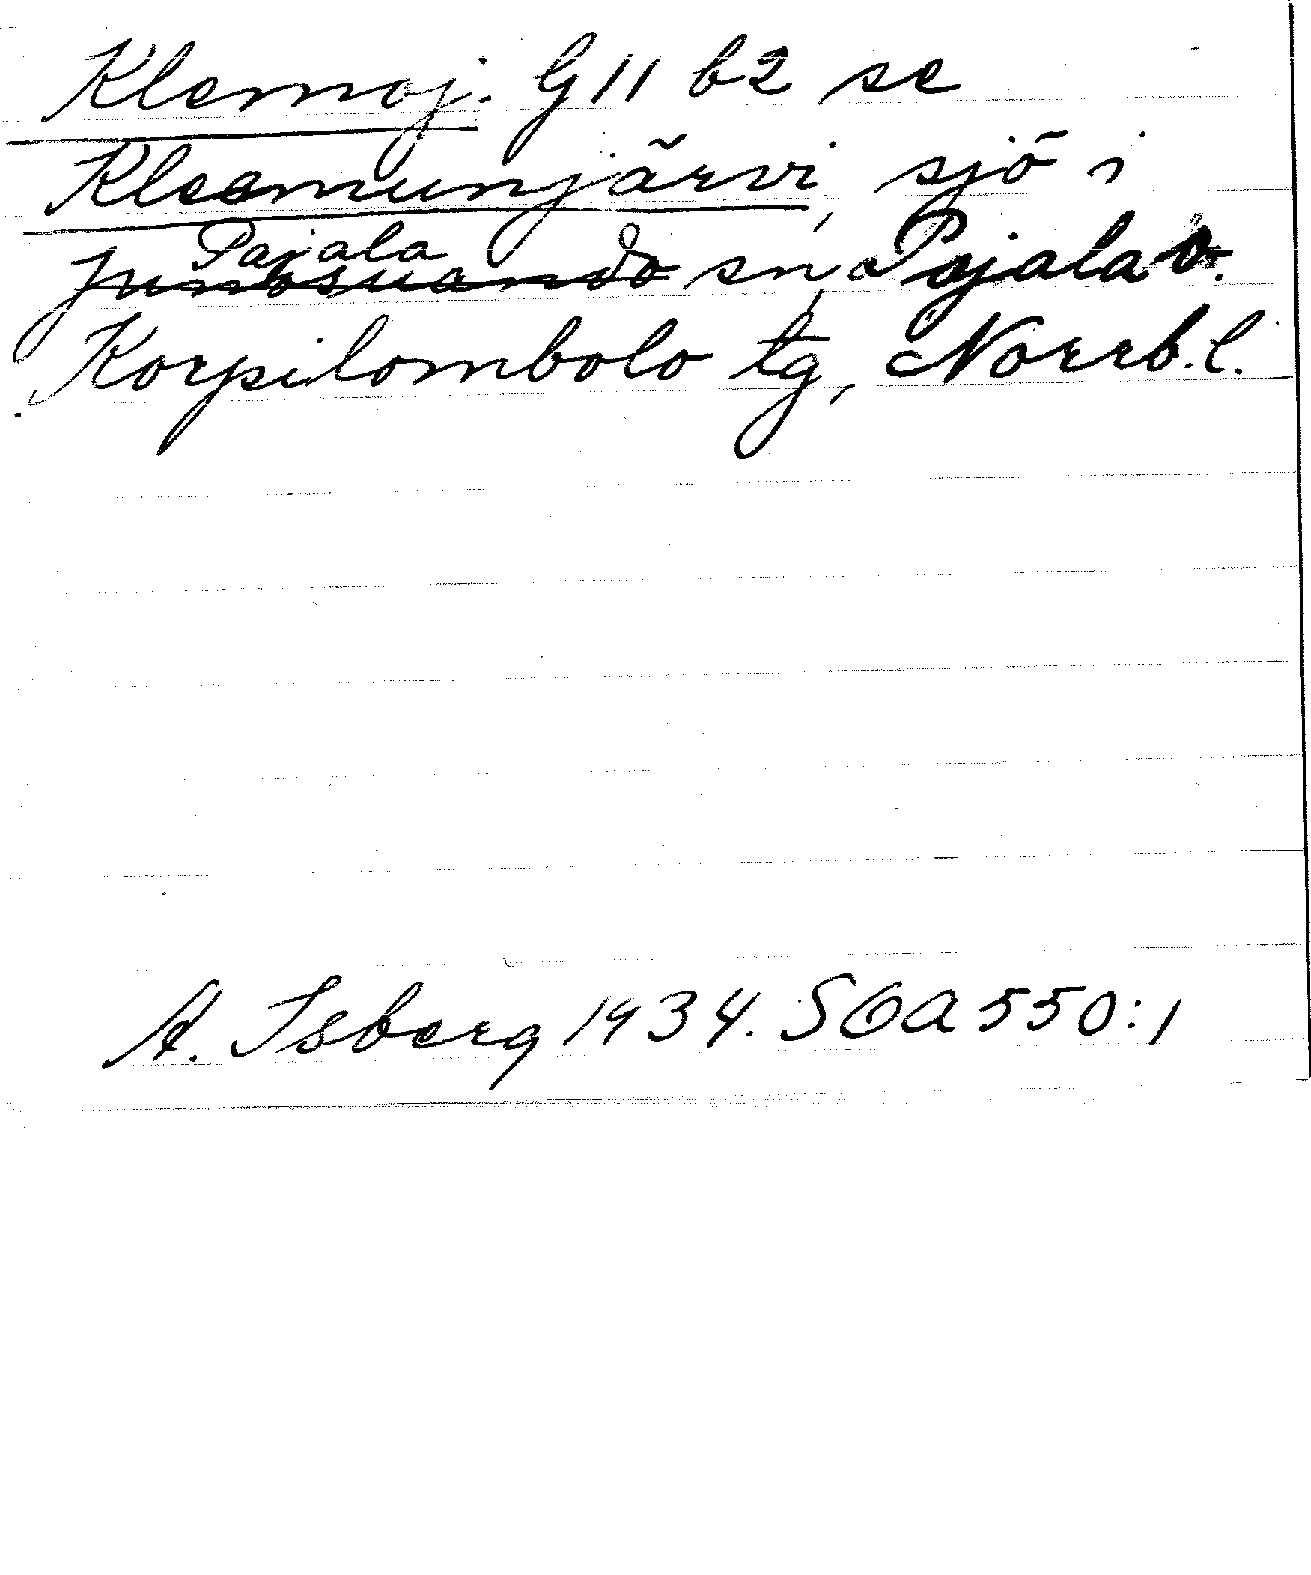 Klemoj. G 11 b2 se
Kleemunjärvi, sjö i
Pajala
Junosuando sn, Pajala o.
Korpilombolo tg, Norrb.l.
A. Isberg 1934. SOA 550:1